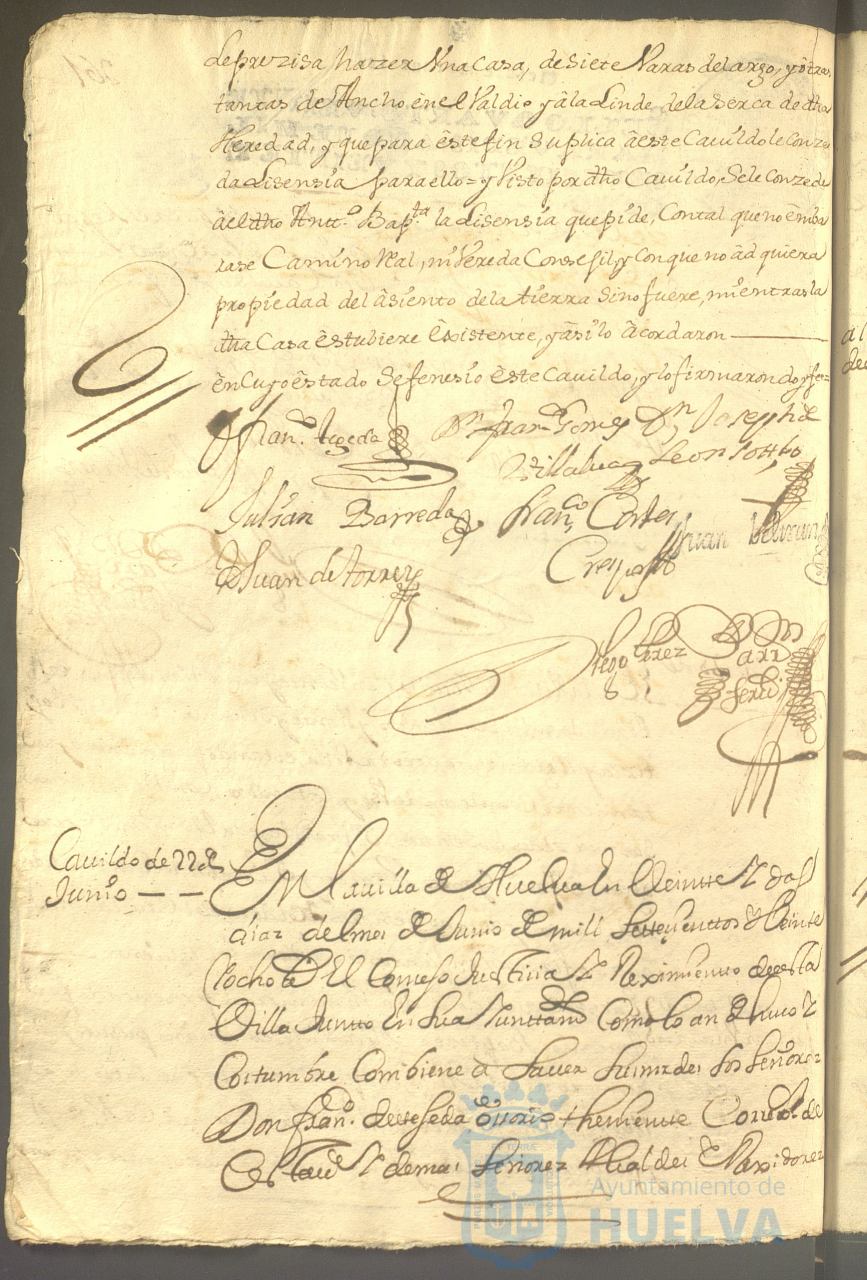 le prezisa hazer Vna Casa, de Siete Varas de largo, y otras
tantas de Ancho en el Valdio y a la Linde de la Serca de dha
Heredad, y que para este fin Suplica a este Cauildo le Conze
da Lisensia para ello = y Visto por dho Cauildo, Se le Conzede
a el dho Antt.o Bap.ta la Lisensia que pide, Con tal que no emba
rase Camino Real, ni Vereda Consegil, y Con que no adquiera
propiedad del asiento de la tierra Sino fuere, mientras la
dha Casa estubiere Existente, y asi lo acordaron
en Cuyo estado Se fenesio este Cauildo, y lo firmaron doy fee=
Fran.co Tegeda
Fran.co Gomes
Villalua
Dn Joseph de
Leon
Julian Barreda
Fran.co Cortes
Crespo
Juan
D Juan de torres
Cauildo de 22 de
Junio
En la uilla de Huelua En Veinte Y dos
dias del mes de Junio de mill Setteçenttos & Veinte
Y ocho El Consejo Justicia Y Reximiento de esta
Villa Juntto En Su a Yunttam.to Como lo an de huso Y
Costumbre Combiene a Sauer Los Señores
Don fran.co de teseda ossorio thenientte Correx.or de
Esta V.a Y demas Señores Alcaldes E Rexidores
Ayuntamiento de
HUELVA